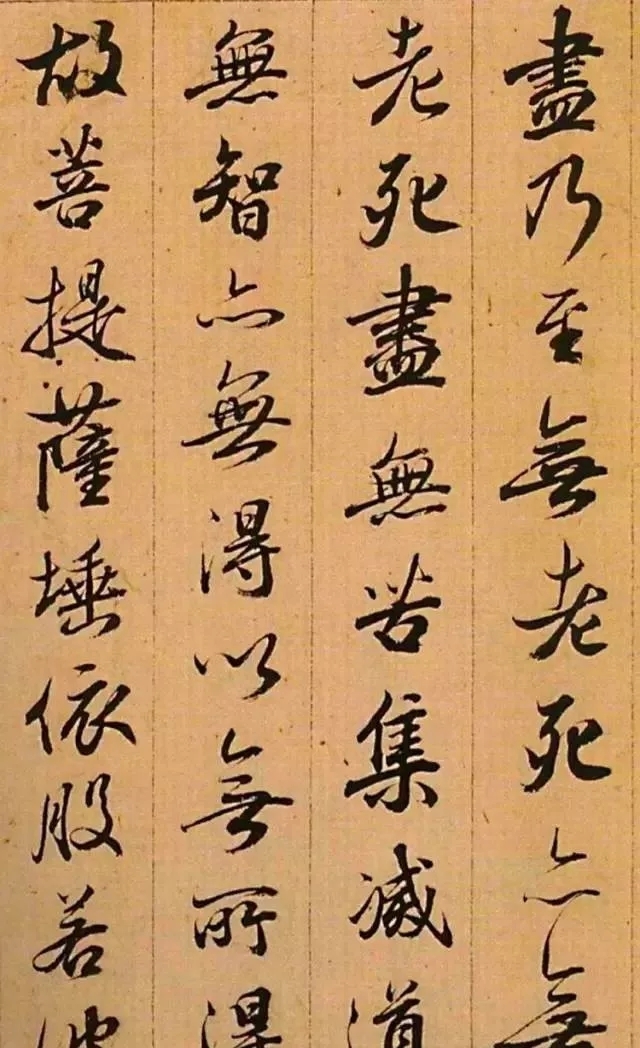 盡乃至無老死亦無
老死盡無苦集滅道
無智亦無得以無所得
故菩提薩埵依般若波